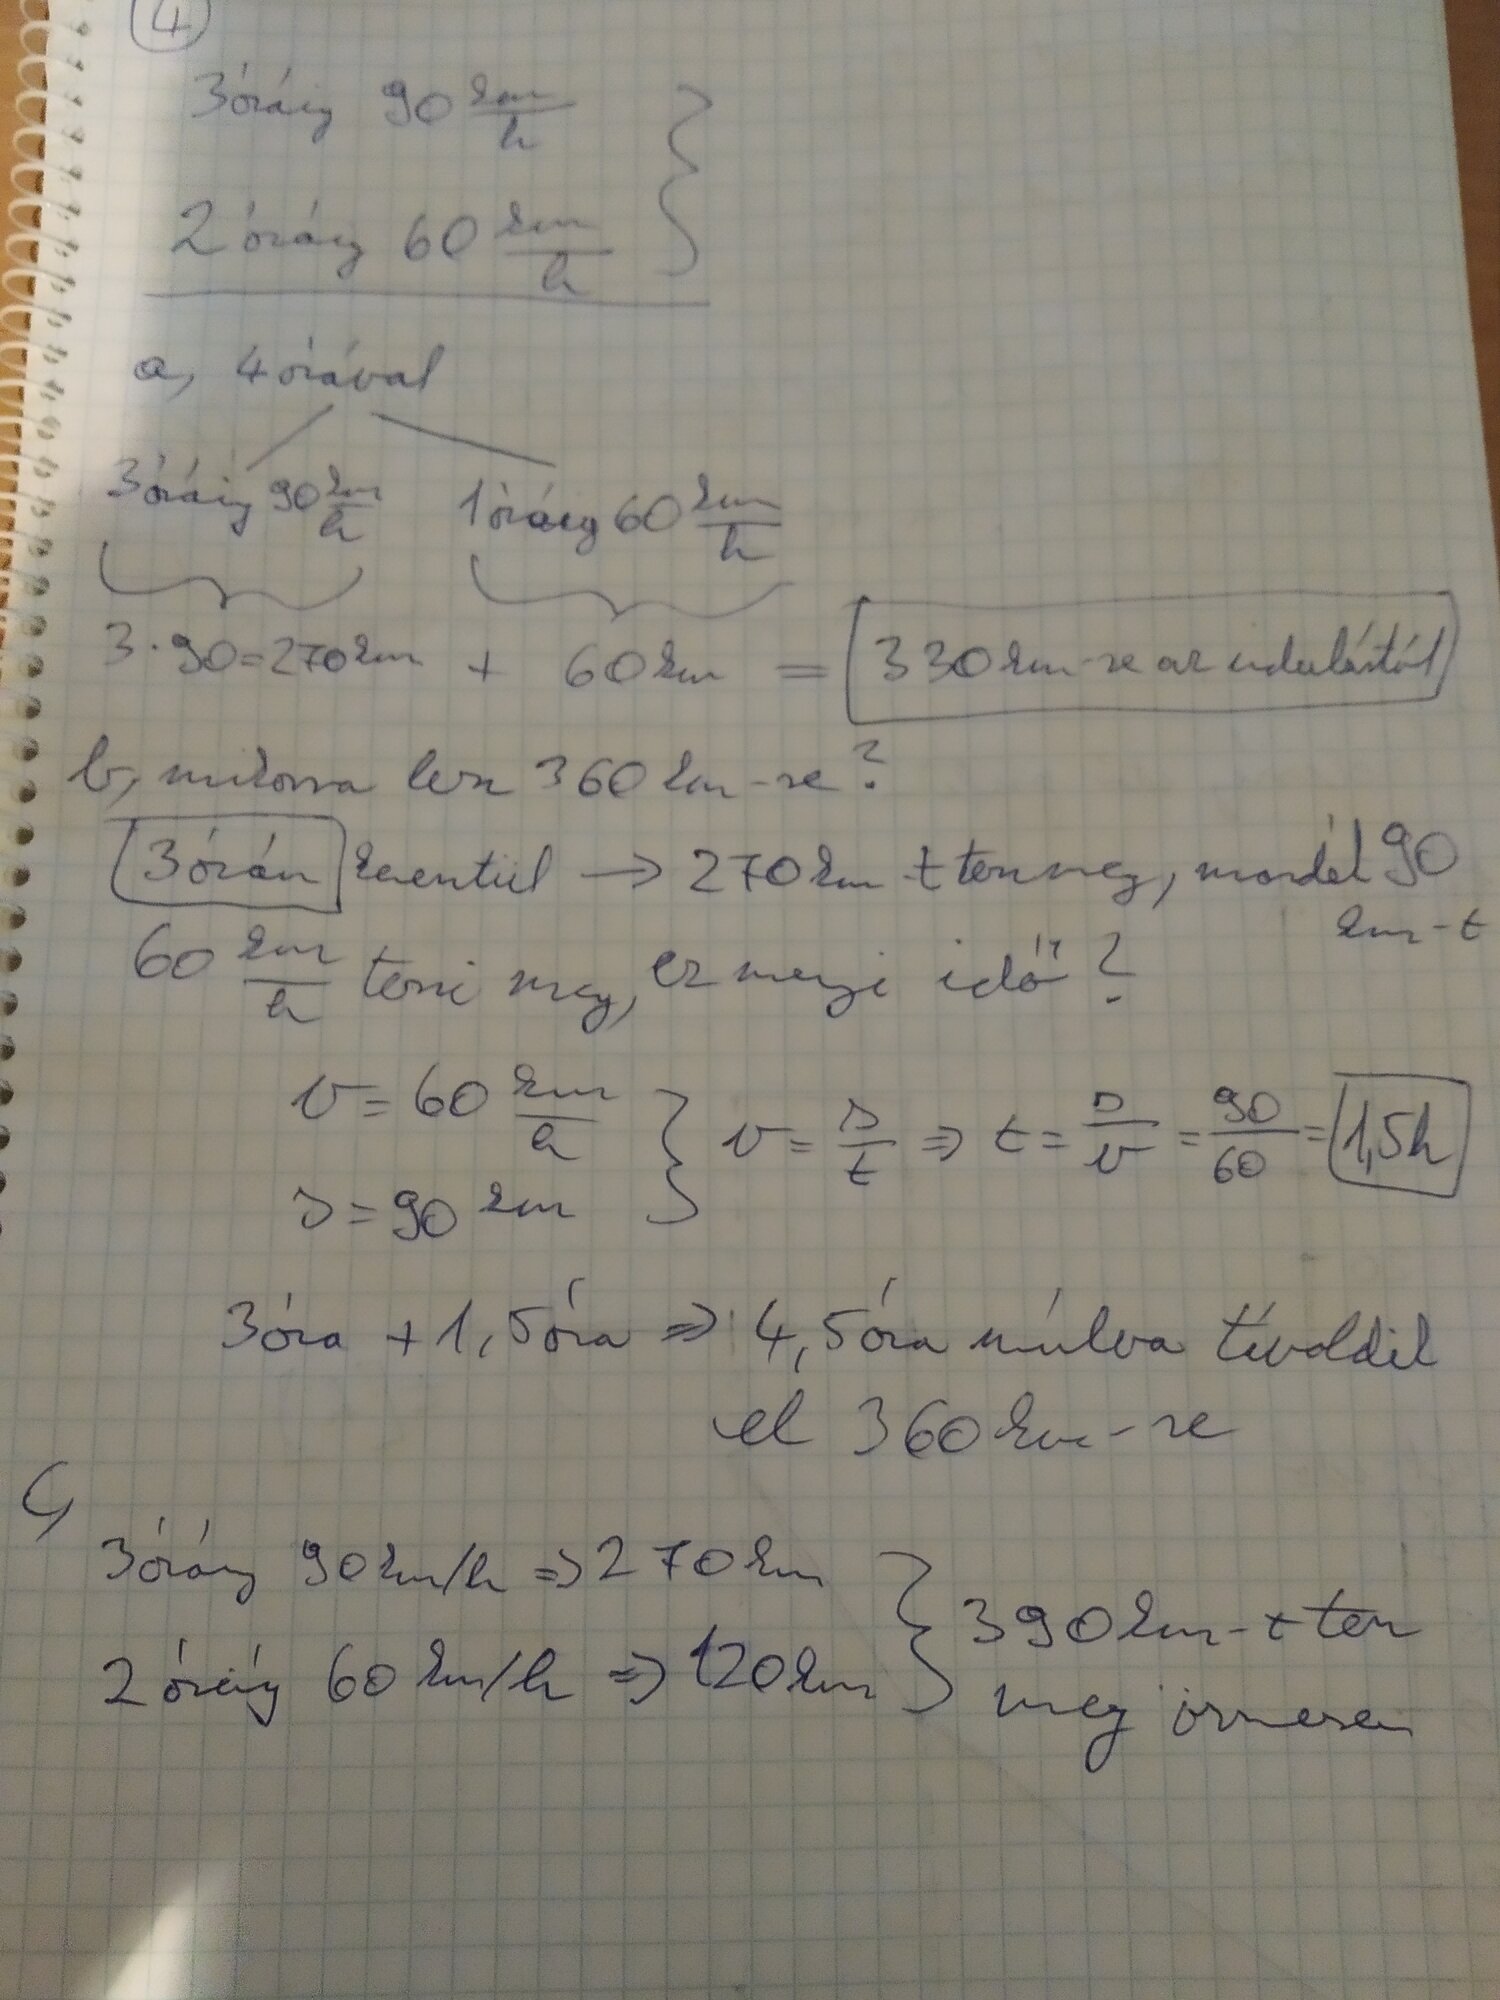 4
3 óráig 90 km/h
2 óráig 60 km/h
a, 4 órával
3 óráig 90 km/h 1 óráig 60 km/h
3·90=270 km + 60 km = 330 km-re az indulástól
b, mikorra lesz 360 km-re?
3 órán keresztül → 270 km-t tesz meg, maradék 90
km-t
60 km/h teszi meg, ez menyi idő?
v = 60 km/h
s = 90 km
v = s/t ⇒ t = s/v = 90/60 = 1,5h
3 óra + 1,5 óra ⇒ 4,5 óra múlva távolodik
el 360 km-re
C,
3 óráig 90 km/h ⇒ 270 km
2 óráig 60 km/h ⇒ 120 km
390 km-t tesz
meg összesen